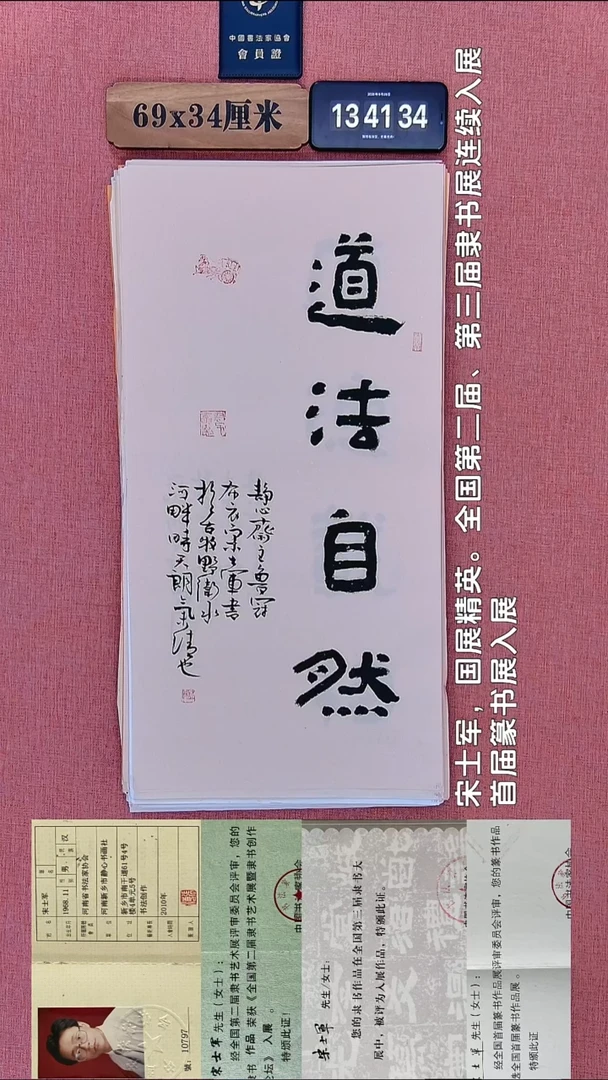 中國書法家協會
會員證
69x34厘米
13 41 34
道法自然
靜心齋主魯冠
布衣宋士軍書
於古牧野衛水
河畔時天朗氣清也
宋士军，国展精英。全国第二届、第三届隶书展连续入展
首届篆书展入展
宋士军
男
汉
1968.11
河南省书法家协会
河南新乡市静心书画社
新乡市南干道61号4号
楼4单元5号
书法创作
2010年
號：10797
宋士军 先生（女士）：
经全国第二届隶书艺术展评审委员会评审，您的
隶书 作品 荣获《全国第二届隶书艺术展暨隶书创作
论坛》入展。
特颁此证！
宋士军 先生/女士：
您的隶书作品在全国第三届隶书大
展中，被评为入展作品，特颁此证。
士军 先生（女士）：
经全国首届篆书作品展评审委员会评审，您的篆书作品
选全国首届篆书作品展。
特颁此证